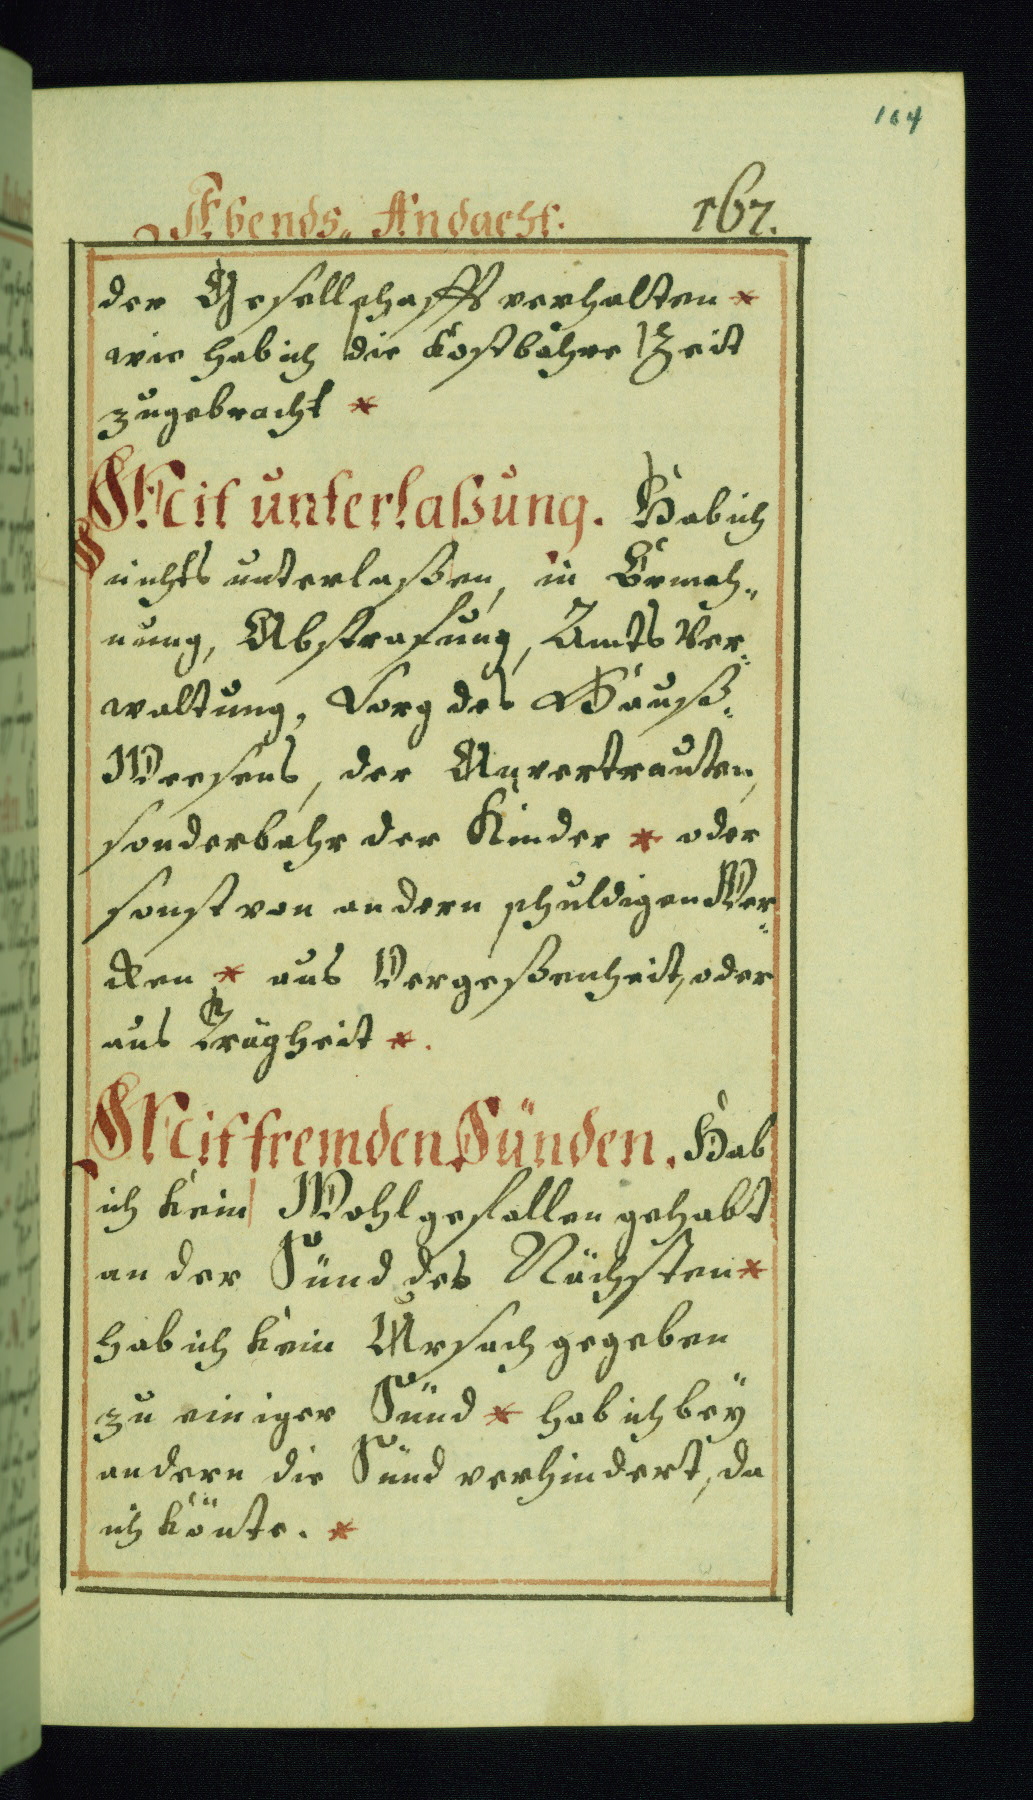 164
Abends-Andacht. 167.
der Gesellschafft verhalten *
wie hab ich die kostbahre Zeit
zugebracht *
Mit unterlaßung. Hab ich
nichts unterlaßen, in Ermah-
nung, Abstrafung, Amts Ver-
waltung, Sorg des Hauß-
Weesens, der Anvertrauten,
sonderbahr der Kinder * oder
sonst von andern schuldigen Wer-
cken * aus Vergeßenheit, oder
aus Trägheit *.
Mit fremden Sünden. Hab
ich kein Wohlgefallen gehabt
an der Sünd des Nächsten *
hab ich kein Ursach gegeben
zu einiger Sünd * hab ich beÿ
andern die Sünd verhindert, da
ich könte. *